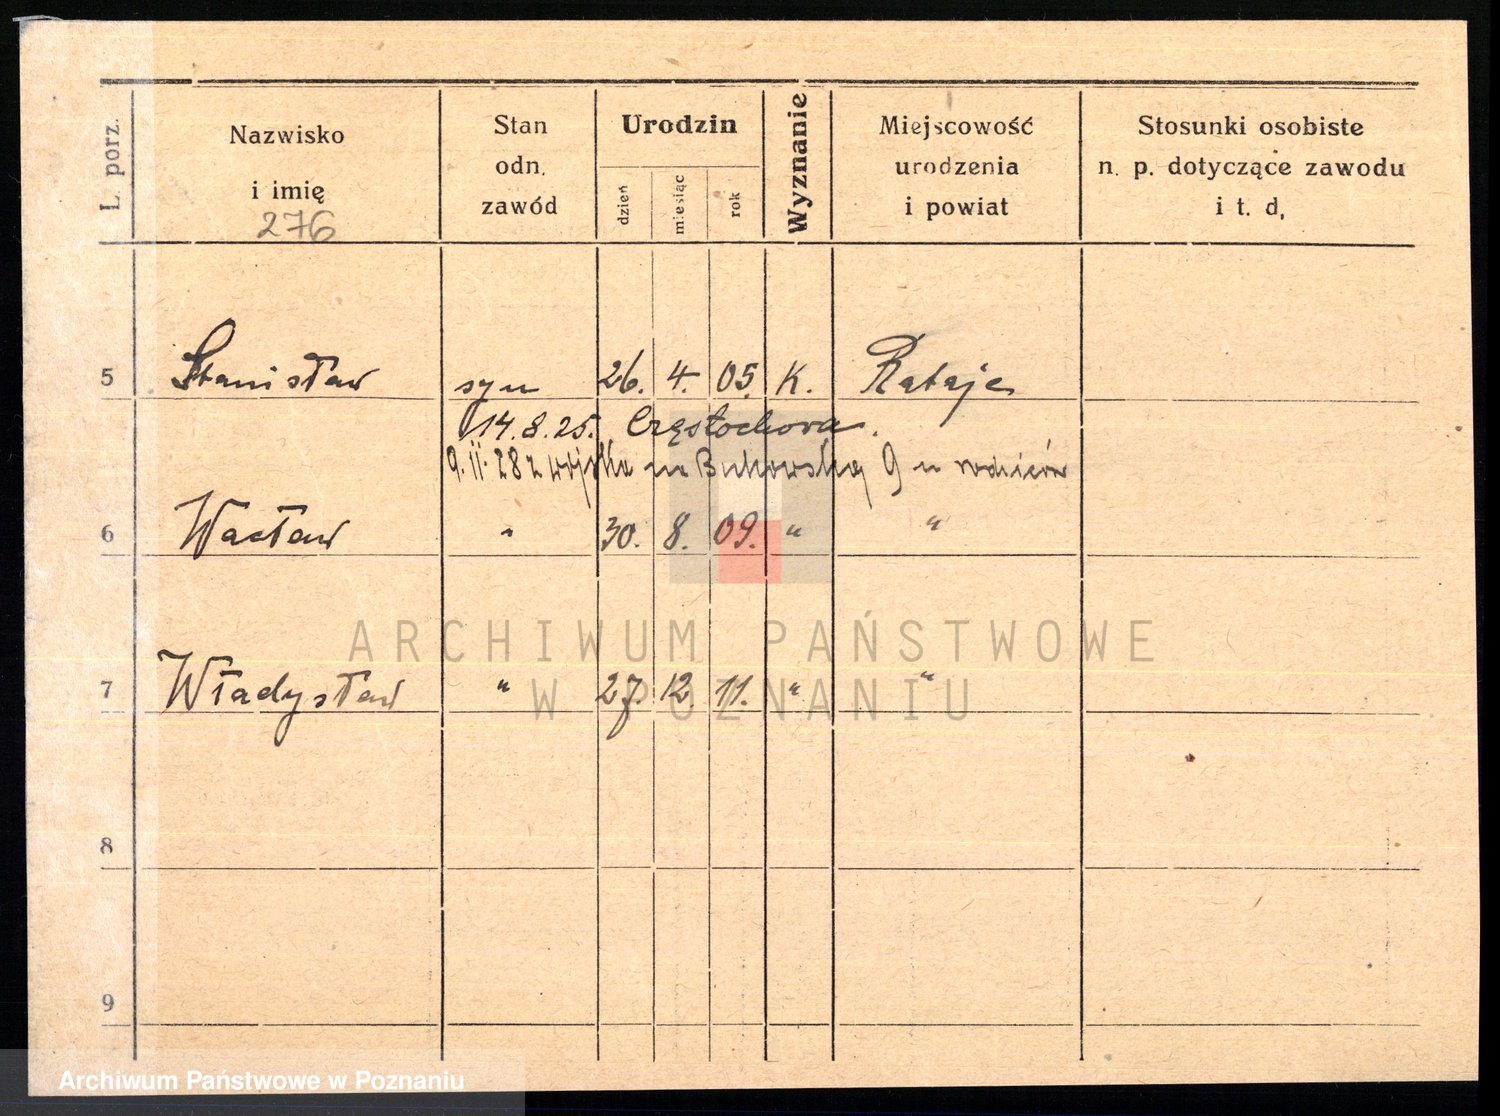 L. porz.
Nazwisko
i imię
276
Stan
odn.
zawód
Urodzin
dzień
miesiąc
rok
Wyznanie
Miejscowość
urodzenia
i powiat
Stosunki osobiste
n. p. dotyczące zawodu
i t. d.
5 Stanisław syn 26. 4. 05. K. Rataje
14.8.25. Częstochowa.
9.11.28 z wojska na Bukowską 9 u rodziców
6 Wacław " 30. 8. 09. " "
7 Władysław " 27. 12. 11. " "
8
9
ARCHIWUM PAŃSTWOWE
W POZNANIU
Archiwum Państwowe w Poznaniu